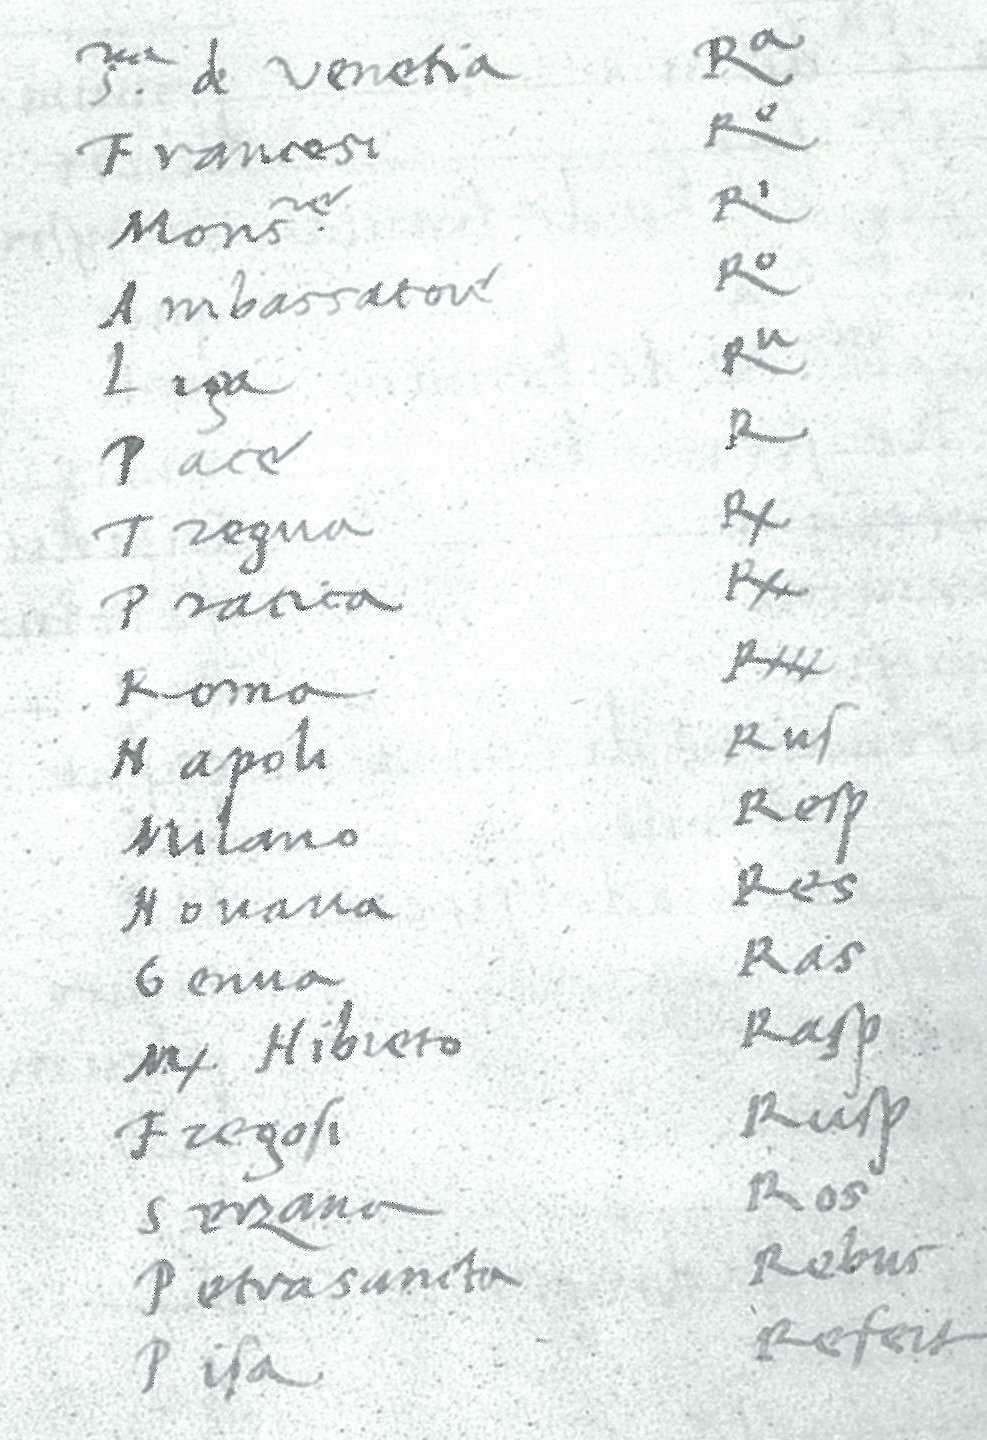 S.ria de Venetia Ra
Francesi Re
Mons.re Ri
Ambassatori Ro
Liga Ru
Pace R
Tregua
Pratica
Roma
Napoli Rus
Milano Resp
Novara Res
Genua Ras
Hibreto Rasp
Fregosi Rusp
Serzana Ros
Petrasancta Rebus
Pisa Refert